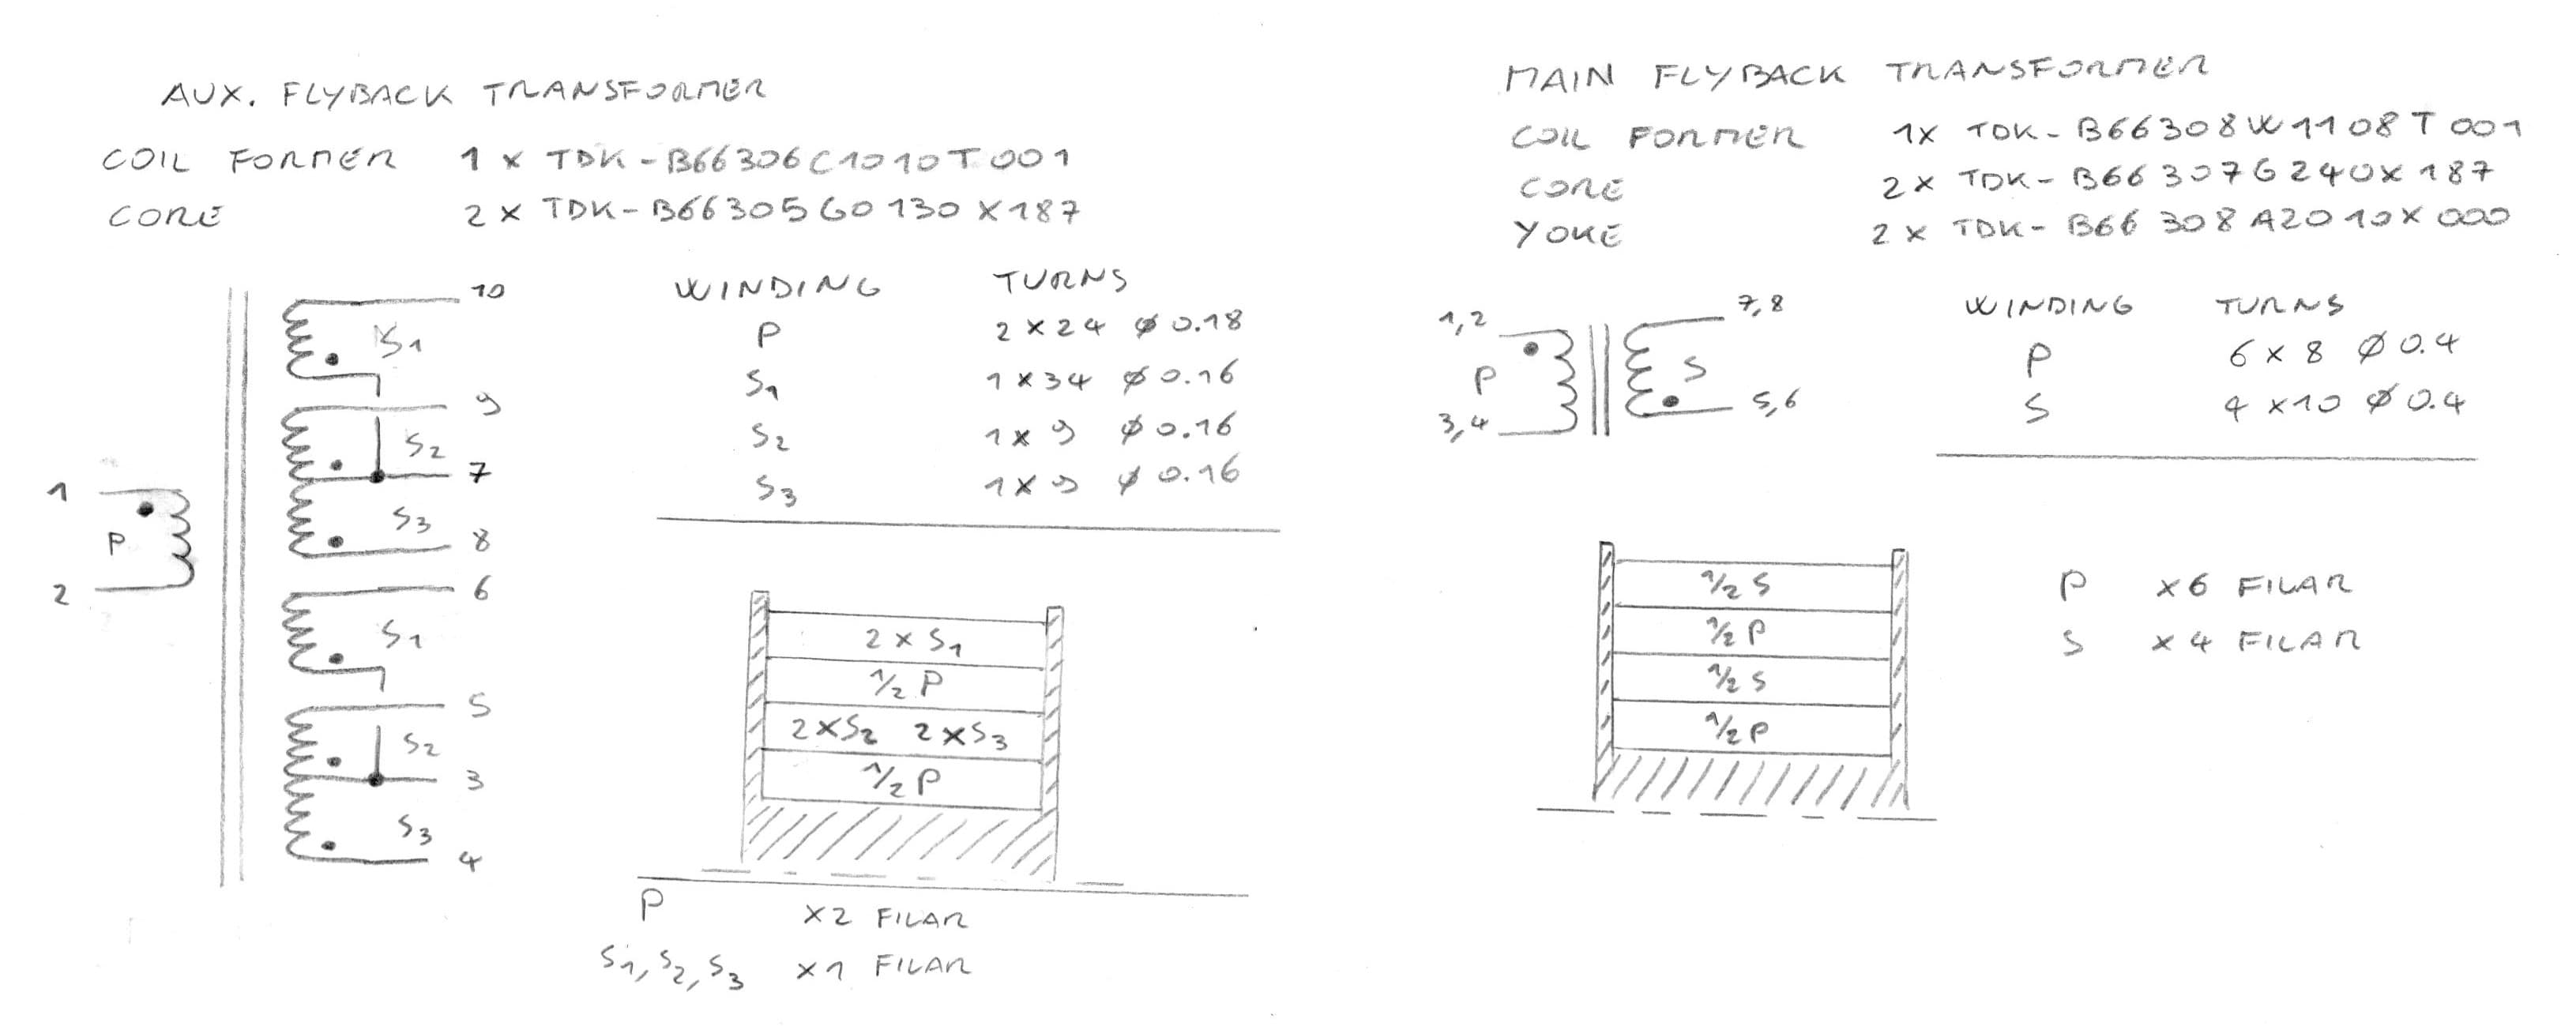 AUX. FLYBACK TRANSFORMER
COIL FORMER 1 x TDK-B66306C1010T001
CORE 2 x TDK-B66305G0130X187
10
S1
9
S2
7
S3
8
6
S1
5
S2
3
S3
4
1
P
2
WINDING TURNS
P 2 x 24 ø 0.18
S1 1 x 34 ø 0.16
S2 1 x 9 ø 0.16
S3 1 x 9 ø 0.16
2 x S1
1/2 P
2xS2 2xS3
1/2 P
P x2 FILAR
S1, S2, S3 x1 FILAR
MAIN FLYBACK TRANSFORMER
COIL FORMER 1x TDK-B66308W1108T001
CORE 2x TDK-B66307G240X187
YOKE 2x TDK-B66308A2010X000
1,2
P
3,4
7,8
S
5,6
WINDING TURNS
P 6 x 8 ø 0.4
S 4 x 10 ø 0.4
1/2 S
1/2 P
1/2 S
1/2 P
P x6 FILAR
S x4 FILAR